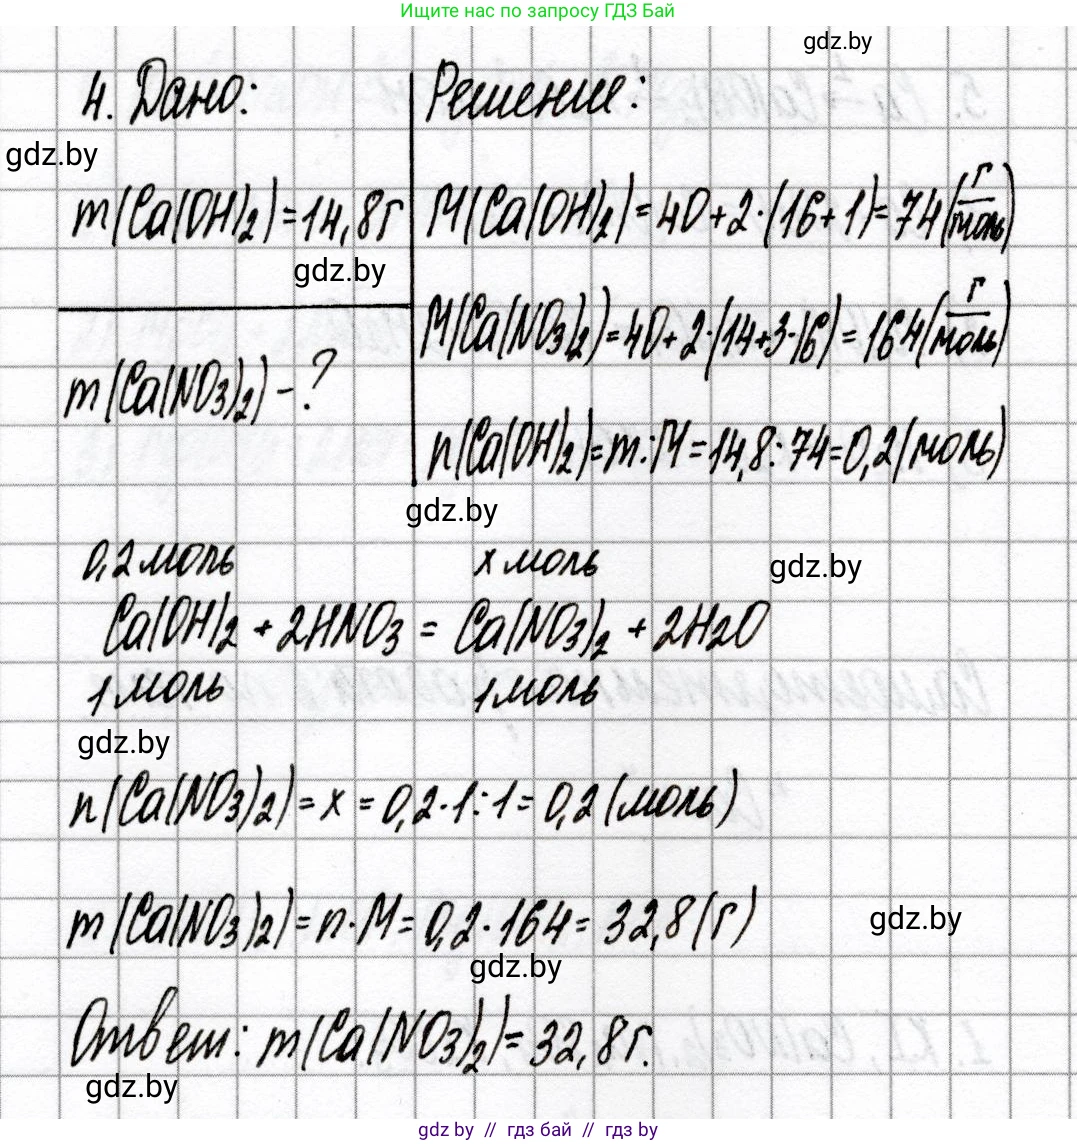 Ищите нас по запросу ГДЗ Бай
gdz.by
4. Дано:
Решение:
gdz.by
m(Ca(OH)₂)=14,8г
M(Ca(OH)₂)=40+2·(16+1)=74(г/моль)
gdz.by
M(Ca(NO₃)₂)=40+2·(14+3·16)=164(г/моль)
m(Ca(NO₃)₂)-?
n(Ca(OH)₂)=m:M=14,8:74=0,2(моль)
gdz.by
0,2 моль x моль
gdz.by
Ca(OH)₂ + 2HNO₃ = Ca(NO₃)₂ + 2H₂O
1 моль 1 моль
gdz.by
n(Ca(NO₃)₂)=x=0,2·1:1=0,2(моль)
m(Ca(NO₃)₂)=n·M=0,2·164=32,8(г)
gdz.by
gdz.by
Ответ: m(Ca(NO₃)₂)=32,8г.
gdz.by
gdz.by // гдз бай // гдз by